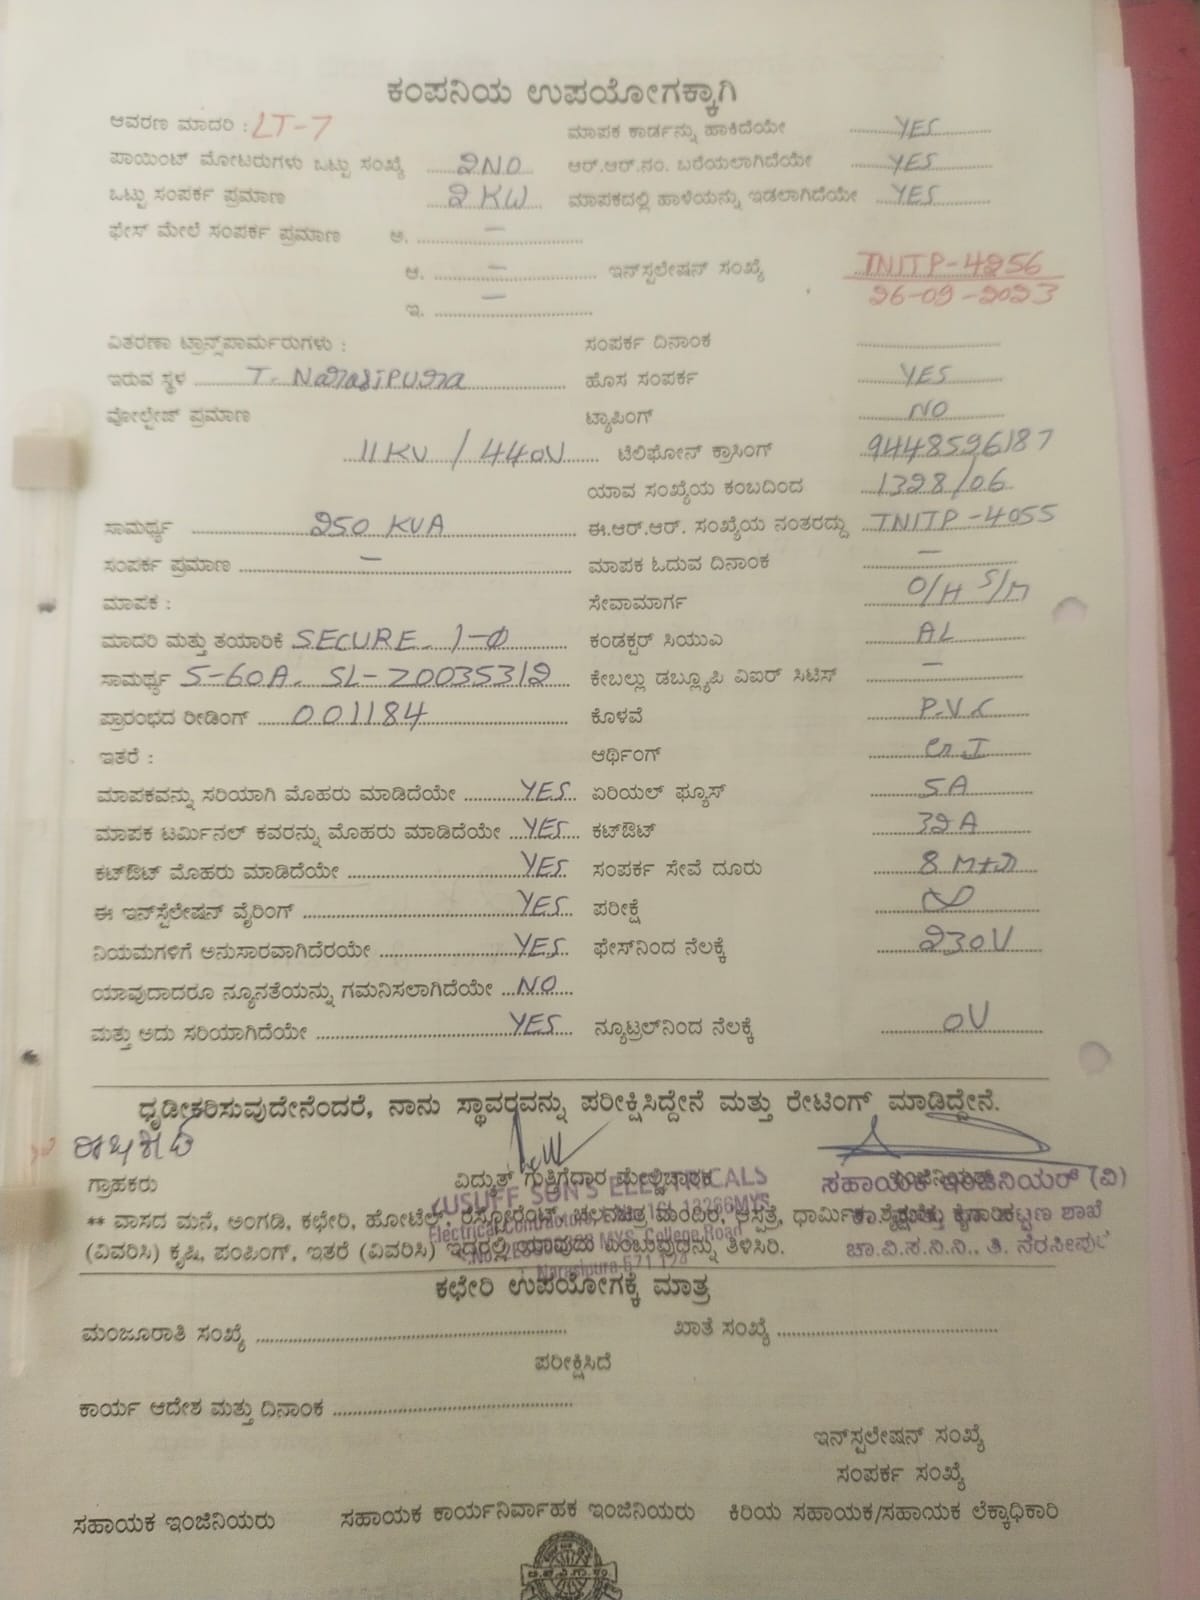 ಕಂಪನಿಯ ಉಪಯೋಗಕ್ಕಾಗಿ
ಆವರಣ ಮಾದರಿ : LT-7 ಮಾಪಕ ಕಾರ್ಡನ್ನು ಹಾಕಿದೆಯೇ YES
ಪಾಯಿಂಟ್ ಮೋಟರುಗಳು ಒಟ್ಟು ಸಂಖ್ಯೆ 2NO ಆರ್.ಆರ್.ನಂ. ಬರೆಯಲಾಗಿದೆಯೇ YES
ಒಟ್ಟು ಸಂಪರ್ಕ ಪ್ರಮಾಣ 2 KW ಮಾಪಕದಲ್ಲಿ ಹಾಳೆಯನ್ನು ಇಡಲಾಗಿದೆಯೇ YES
ಫೇಸ್ ಮೇಲೆ ಸಂಪರ್ಕ ಪ್ರಮಾಣ ಅ. –
ಆ. – ಇನ್‌ಸ್ಪಲೇಷನ್ ಸಂಖ್ಯೆ TNJTP-4256
26-09-2023
ಇ. –
ವಿತರಣಾ ಟ್ರಾನ್ಸ್‌ಪಾರ್ಮರುಗಳು : ಸಂಪರ್ಕ ದಿನಾಂಕ
ಇರುವ ಸ್ಥಳ T. Narasipura ಹೊಸ ಸಂಪರ್ಕ YES
ವೋಲ್ಟೇಜ್ ಪ್ರಮಾಣ ಟ್ಯಾಪಿಂಗ್ NO
11KV / 440V ಟೆಲಿಫೋನ್ ಕ್ರಾಸಿಂಗ್ 9448596187
ಯಾವ ಸಂಖ್ಯೆಯ ಕಂಬದಿಂದ 1328/06
ಸಾಮರ್ಥ್ಯ 250 KVA ಈ.ಆರ್.ಆರ್. ಸಂಖ್ಯೆಯ ನಂತರದ್ದು TNJTP-4055
ಸಂಪರ್ಕ ಪ್ರಮಾಣ – ಮಾಪಕ ಓದುವ ದಿನಾಂಕ –
ಮಾಪಕ : ಸೇವಾಮಾರ್ಗ O/H S/M
ಮಾದರಿ ಮತ್ತು ತಯಾರಿಕೆ SECURE. 1-Φ ಕಂಡಕ್ಟರ್ ಸಿಯುಎ AL
ಸಾಮರ್ಥ್ಯ 5-60A. SL-20035312 ಕೇಬಲ್ಲು ಡಬ್ಲ್ಯೂಪಿ ವಿಐರ್ ಸಿಟಿಸ್ –
ಪ್ರಾರಂಭದ ರೀಡಿಂಗ್ 001184 ಕೊಳವೆ P.V.C
ಇತರೆ : ಆರ್ಥಿಂಗ್ G.I
ಮಾಪಕವನ್ನು ಸರಿಯಾಗಿ ಮೊಹರು ಮಾಡಿದೆಯೇ YES ಏರಿಯಲ್ ಫ್ಯೂಸ್ 5A
ಮಾಪಕ ಟರ್ಮಿನಲ್ ಕವರನ್ನು ಮೊಹರು ಮಾಡಿದೆಯೇ YES ಕಟ್‌ಔಟ್ 32A
ಕಟ್‌ಔಟ್ ಮೊಹರು ಮಾಡಿದೆಯೇ YES ಸಂಪರ್ಕ ಸೇವೆ ದೂರು 8 Mtr
ಈ ಇನ್‌ಸ್ಪೆಲೇಷನ್ ವೈರಿಂಗ್ YES ಪರೀಕ್ಷೆ
ನಿಯಮಗಳಿಗೆ ಅನುಸಾರವಾಗಿದೆರಯೇ YES ಫೇಸ್‌ನಿಂದ ನೆಲಕ್ಕೆ 230V
ಯಾವುದಾದರೂ ನ್ಯೂನತೆಯನ್ನು ಗಮನಿಸಲಾಗಿದೆಯೇ NO
ಮತ್ತು ಅದು ಸರಿಯಾಗಿದೆಯೇ YES ನ್ಯೂಟ್ರಲ್‌ನಿಂದ ನೆಲಕ್ಕೆ 0V
ಧೃಡೀಕರಿಸುವುದೇನೆಂದರೆ, ನಾನು ಸ್ಥಾವರವನ್ನು ಪರೀಕ್ಷಿಸಿದ್ದೇನೆ ಮತ್ತು ರೇಟಿಂಗ್ ಮಾಡಿದ್ದೇನೆ.
ಗ್ರಾಹಕರು ವಿದ್ಯುತ್ ಗುತ್ತಿಗೆದಾರ ಮೇಲ್ವಿಚಾರಕ ಸಹಾಯಕ ಇಂಜಿನಿಯರ್ (ವಿ)
YUSUFF SON'S ELECTRICALS
** ವಾಸದ ಮನೆ, ಅಂಗಡಿ, ಕಛೇರಿ, ಹೋಟೆಲ್, ರೆಸ್ಟೋರೆಂಟ್, ಚಲನಚಿತ್ರ ಮಂದಿರ, ಆಸ್ಪತ್ರೆ, ಧಾರ್ಮಿಕ,
Electrical Contractors
(ವಿವರಿಸಿ) ಕೃಷಿ, ಪಂಪಿಂಗ್, ಇತರೆ (ವಿವರಿಸಿ) ಇದರಲ್ಲಿ ಯಾವುದು ಎಂಬುವುದನ್ನು ತಿಳಿಸಿರಿ. ಚಾ.ವಿ.ಸ.ನಿ.ನಿ., ತಿ. ನರಸೀಪುರ
College Road
Narasipura-571 124
ಕಛೇರಿ ಉಪಯೋಗಕ್ಕೆ ಮಾತ್ರ
ಮಂಜೂರಾತಿ ಸಂಖ್ಯೆ ಖಾತೆ ಸಂಖ್ಯೆ
ಪರೀಕ್ಷಿಸಿದೆ
ಕಾರ್ಯ ಆದೇಶ ಮತ್ತು ದಿನಾಂಕ
ಇನ್‌ಸ್ಪಲೇಷನ್ ಸಂಖ್ಯೆ
ಸಂಪರ್ಕ ಸಂಖ್ಯೆ
ಸಹಾಯಕ ಇಂಜಿನಿಯರು ಸಹಾಯಕ ಕಾರ್ಯನಿರ್ವಾಹಕ ಇಂಜಿನಿಯರು ಕಿರಿಯ ಸಹಾಯಕ/ಸಹಾಯಕ ಲೆಕ್ಕಾಧಿಕಾರಿ